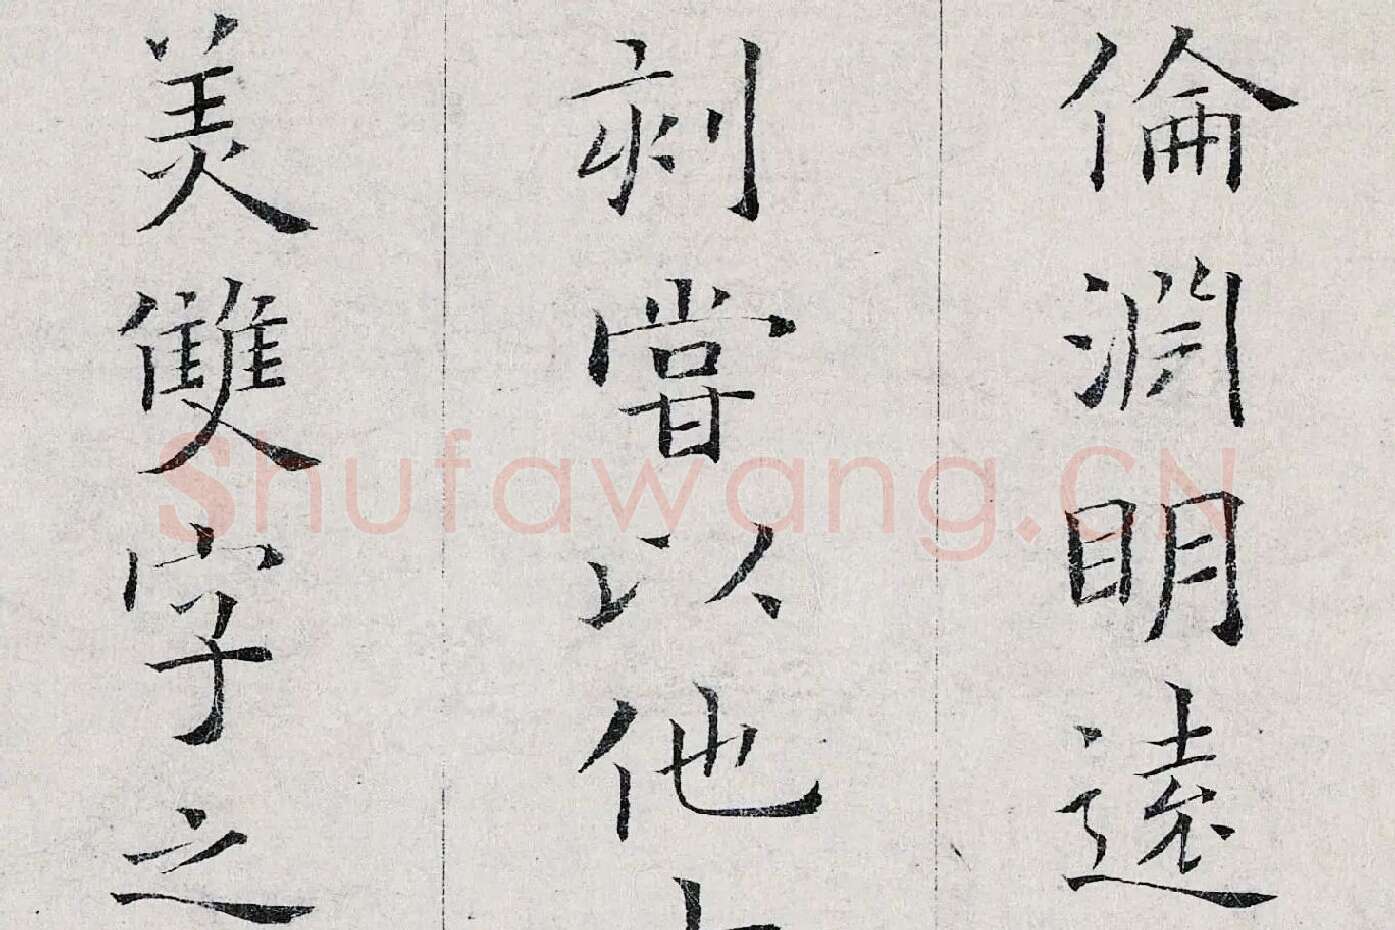 倫淵明遠
刻嘗以他
美雙字之
Shufawang.CN